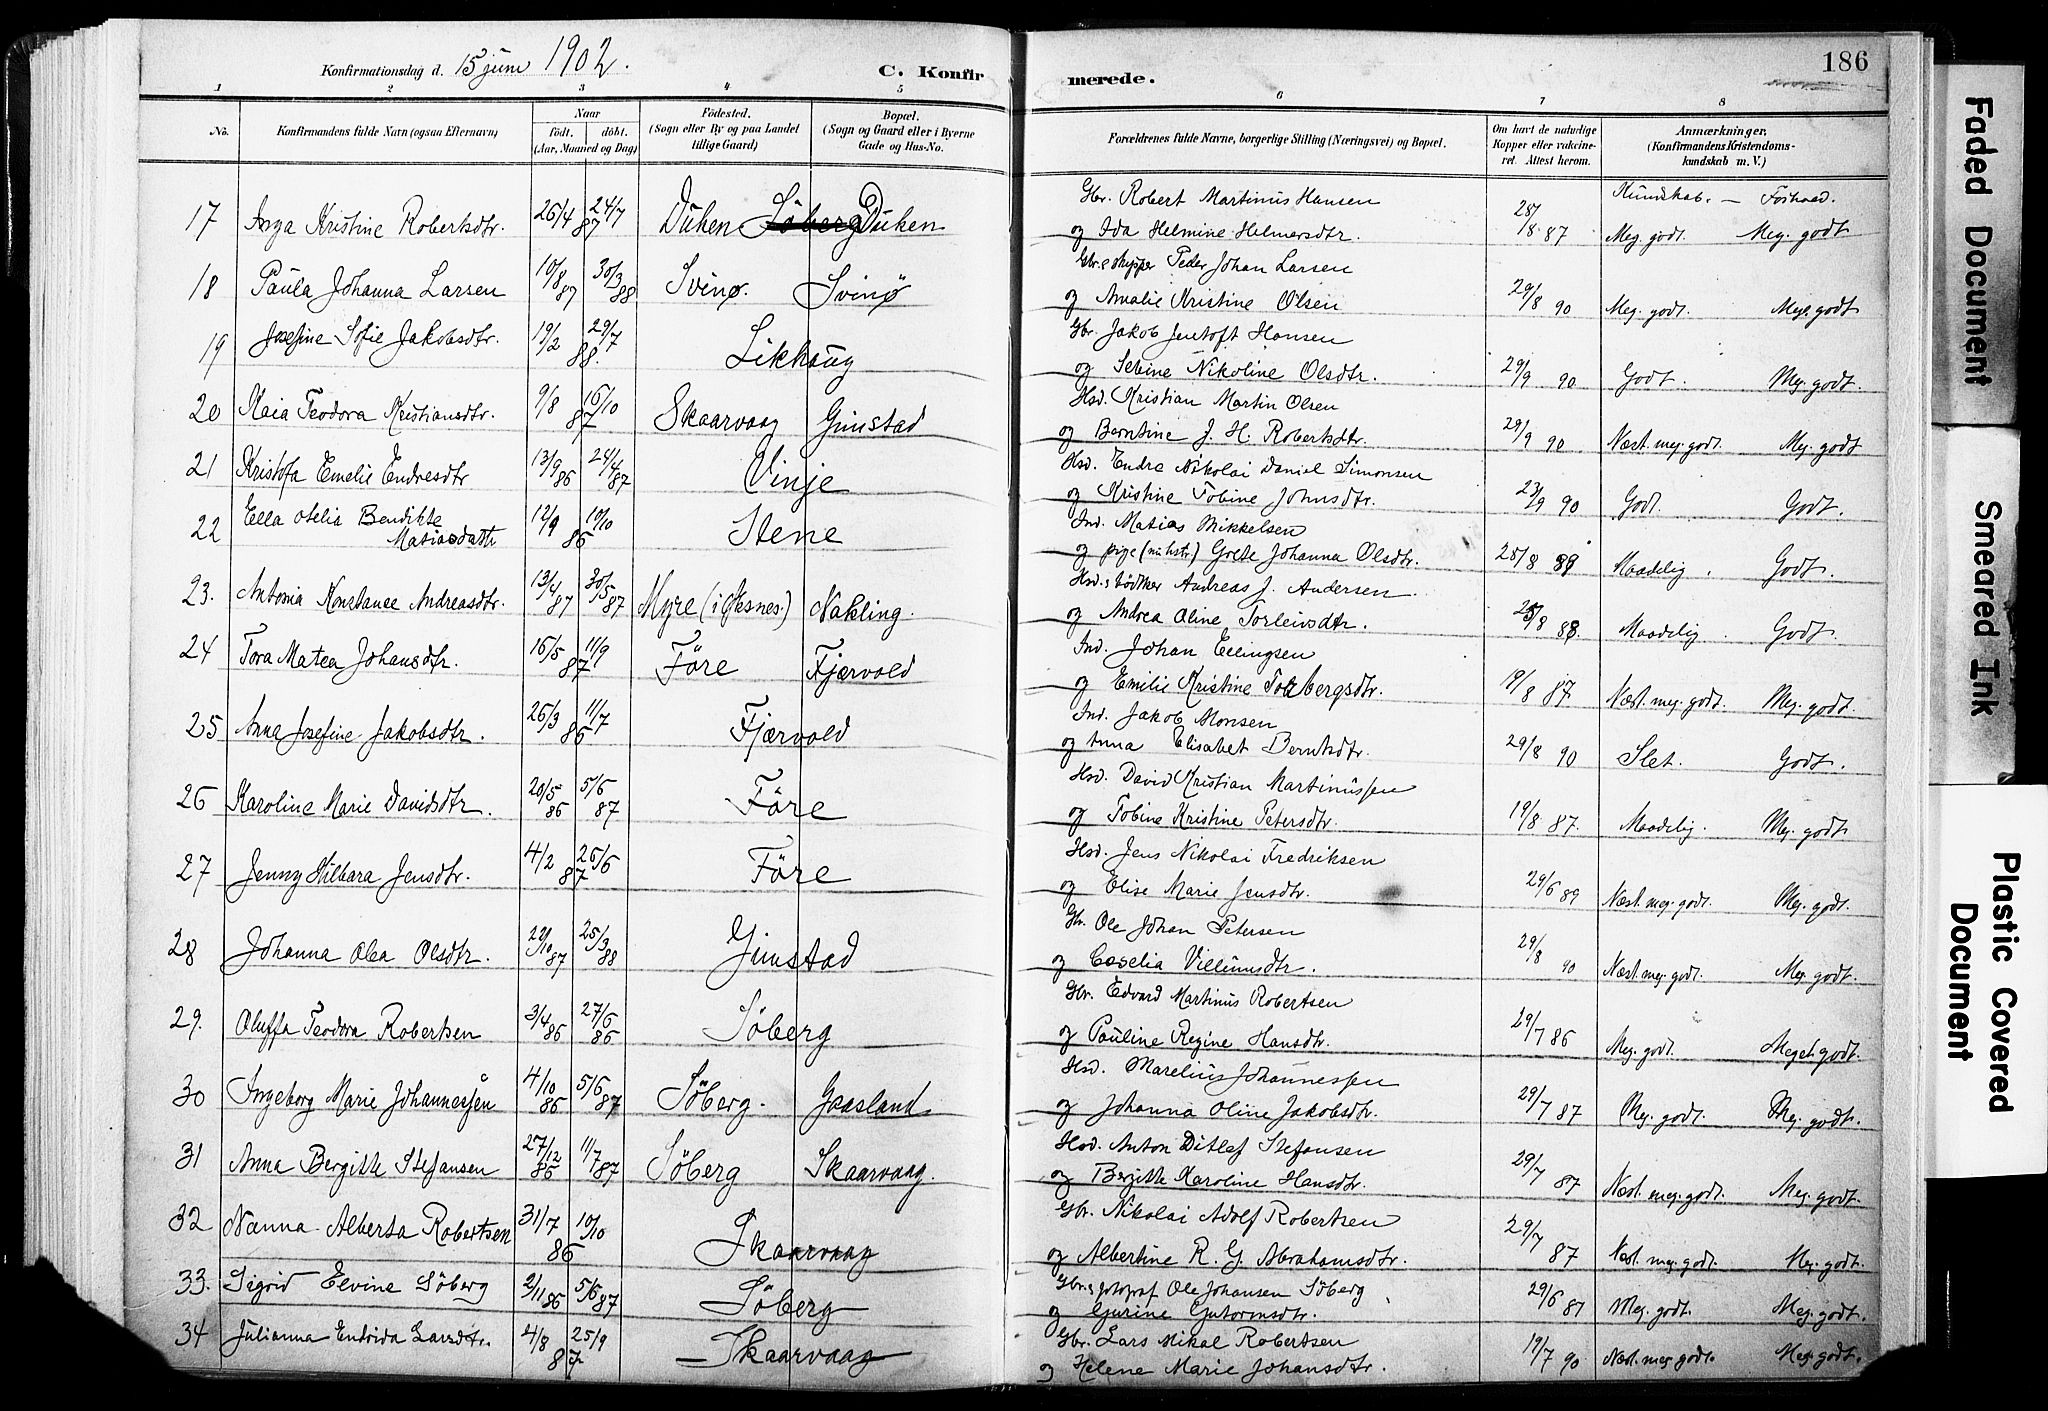 Konfirmationsdag d. 15 juni 1902.
C. Konfir
merede.
186
1 2 3 4 5 6 7 8
No.
Konfirmandens fulde Navn (ogsaa Efternavn)
Naar
födt. döbt.
(Aar, Maaned og Dag)
Födested.
(Sogn eller By og paa Landet
tillige Gaard)
Bopæl.
(Sogn og Gaard eller i Byerne
Gade og Hus-No.
Forældrenes fulde Navne, borgerlige Stilling (Næringsvei) og Bopæl.
Om havt de naturlige
Kopper eller vakcine-
ret. Attest herom.
Anmærkninger,
(Konfirmandens Kristendoms-
kundskab m. V.)
Kundskab. — Forhold.
17 Inga Kristine Robertsdtr. 26/4 24/7 87 Duken Söberg Duken
Gbr. Robert Martinus Hansen
og Ida Helmine Helmersdtr. 28/8 87 Meg. godt. Meg. godt
18 Paula Johanna Larsen 10/8 87 30/3 88 Svinø. Svinø
Gbr. & skipper Peder Johan Larsen
og Amalie Kristine Olsen 29/8 90 Meg. godt. Meget godt
19 Josefine Sofie Jakobsdtr. 19/2 29/7 88. Likhaug
Gbr. Jakob Jentoft Hansen
og Sebine Nikoline Olsdtr. 29/9 90 Godt. Meg. godt.
20 Kaia Teodora Kristiansdtr. 9/8 16/10 87 Skaarvaag Gimstad
Hsd. Kristian Martin Olsen
og Berntine J. H. Robertsdtr. 29/9 90 Næst. meg. godt. Meg. godt
21 Kristofa Emelie Endresdtr 13/9 86 24/4 87 Vinje
Hsd. Endre Nikolai Daniel Simonsen
og Kristine Tobine Johnsdtr. 23/9 90 Godt. Godt.
22 Ella Otelia Bendikte Matiasdatr 12/9 10/10 86 Stene
Ind. Matias Mikkelsen
og pige Grete Johanna Olsdtr. 28/8 89 Maadelig. Godt.
23. Antonia Konstance Andreasdtr. 13/4 87 30/5 87 Myre (i Øksnes.) Nakling.
Hsd. & bödker Andreas J. Andersen
og Andrea Oline Torleivsdtr. 25/8 88. Maadelig. Godt.
24 Tora Matea Johansdtr. 16/5 11/9 87 Före Fjærvold
Ind. Johan Ellingsen
og Emilie Kristine Torbergsdtr. 19/8 87 Næst. meg. godt. Meg. godt.
25 Anna Josefine Jakobsdtr. 26/3 11/7 86 Fjærvold
Ind. Jakob Monsen
og Anna Elisabet Berntsdtr. 29/8 90 Slet. Godt.
26 Karoline Marie Davidsdtr. 20/5 86 5/6 87 Före
Hsd. David Kristian Martinussen
og Tobine Kristine Petersdtr. 19/8 87. Maadelig. Meg. godt
27 Jenny Hilbara Jensdtr. 4/2 26/6 87 Före
Hsd. Jens Nikolai Fredriksen
og Elise Marie Jensdtr. 29/6 89 Næst. meg. godt. Meg. godt.
28 Johanna Olea Olsdtr. 22/10 87 25/3 88 Gimstad
Gbr. Ole Johan Petersen
og Coselia Villumsdtr. 29/8 90 Næst. meg. godt. Meg. godt.
29. Oluffa Teodora Robertsen 3/4 86 27/6 86 Söberg
Gbr. Edvard Martinus Robertsen
og Pauline Regine Hansdtr. 29/7 86 Meg. godt. Meget godt.
30 Ingeborg Marie Johannessen 4/10 86 5/6 87 Söberg. Gaasland
Hsd. Marelius Johannessen
og Johanna Oline Jakobsdtr. 29/7 87 Meg. godt. Meg. godt.
31 Anna Bergitte Stefansen 27/12 86 11/7 87 Söberg Skaarvaag.
Hsd. Anton Ditlef Stefansen
og Bergitte Karoline Hansdtr. 29/7 87 Næst. meg. godt. Meg. godt.
32 Nanna Alberta Robertsen 31/7 10/10 86 Skaarvaag
Gbr. Nikolai Adolf Robertsen
og Albertine R. G. Abrahamsdtr. 29/7 87 Næst. meg. godt. Meg. godt.
33. Sigrid Elvine Söberg 2/11 86 5/6 87 Söberg
Gbr. & fotograf Ole Johansen Söberg
og Gurine Gutormsdtr. 29/6 87 Meg. godt. Meg. godt.
34 Julianna Endrida Larsdtr. 4/8 25/9 87 Skaarvaag
Gbr. Lars Mikal Robertsen
og Helene Marie Johansdtr. 19/7 90 Næst. meg. godt. Meg. godt.
Faded Document
Smeared Ink
Plastic Covered
Document